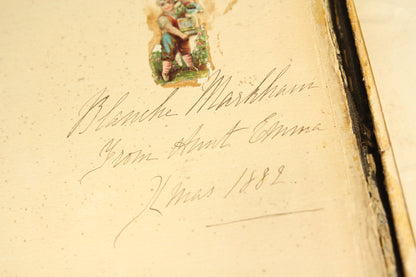 Blanche Markham
From Aunt Emma
Xmas 1882.